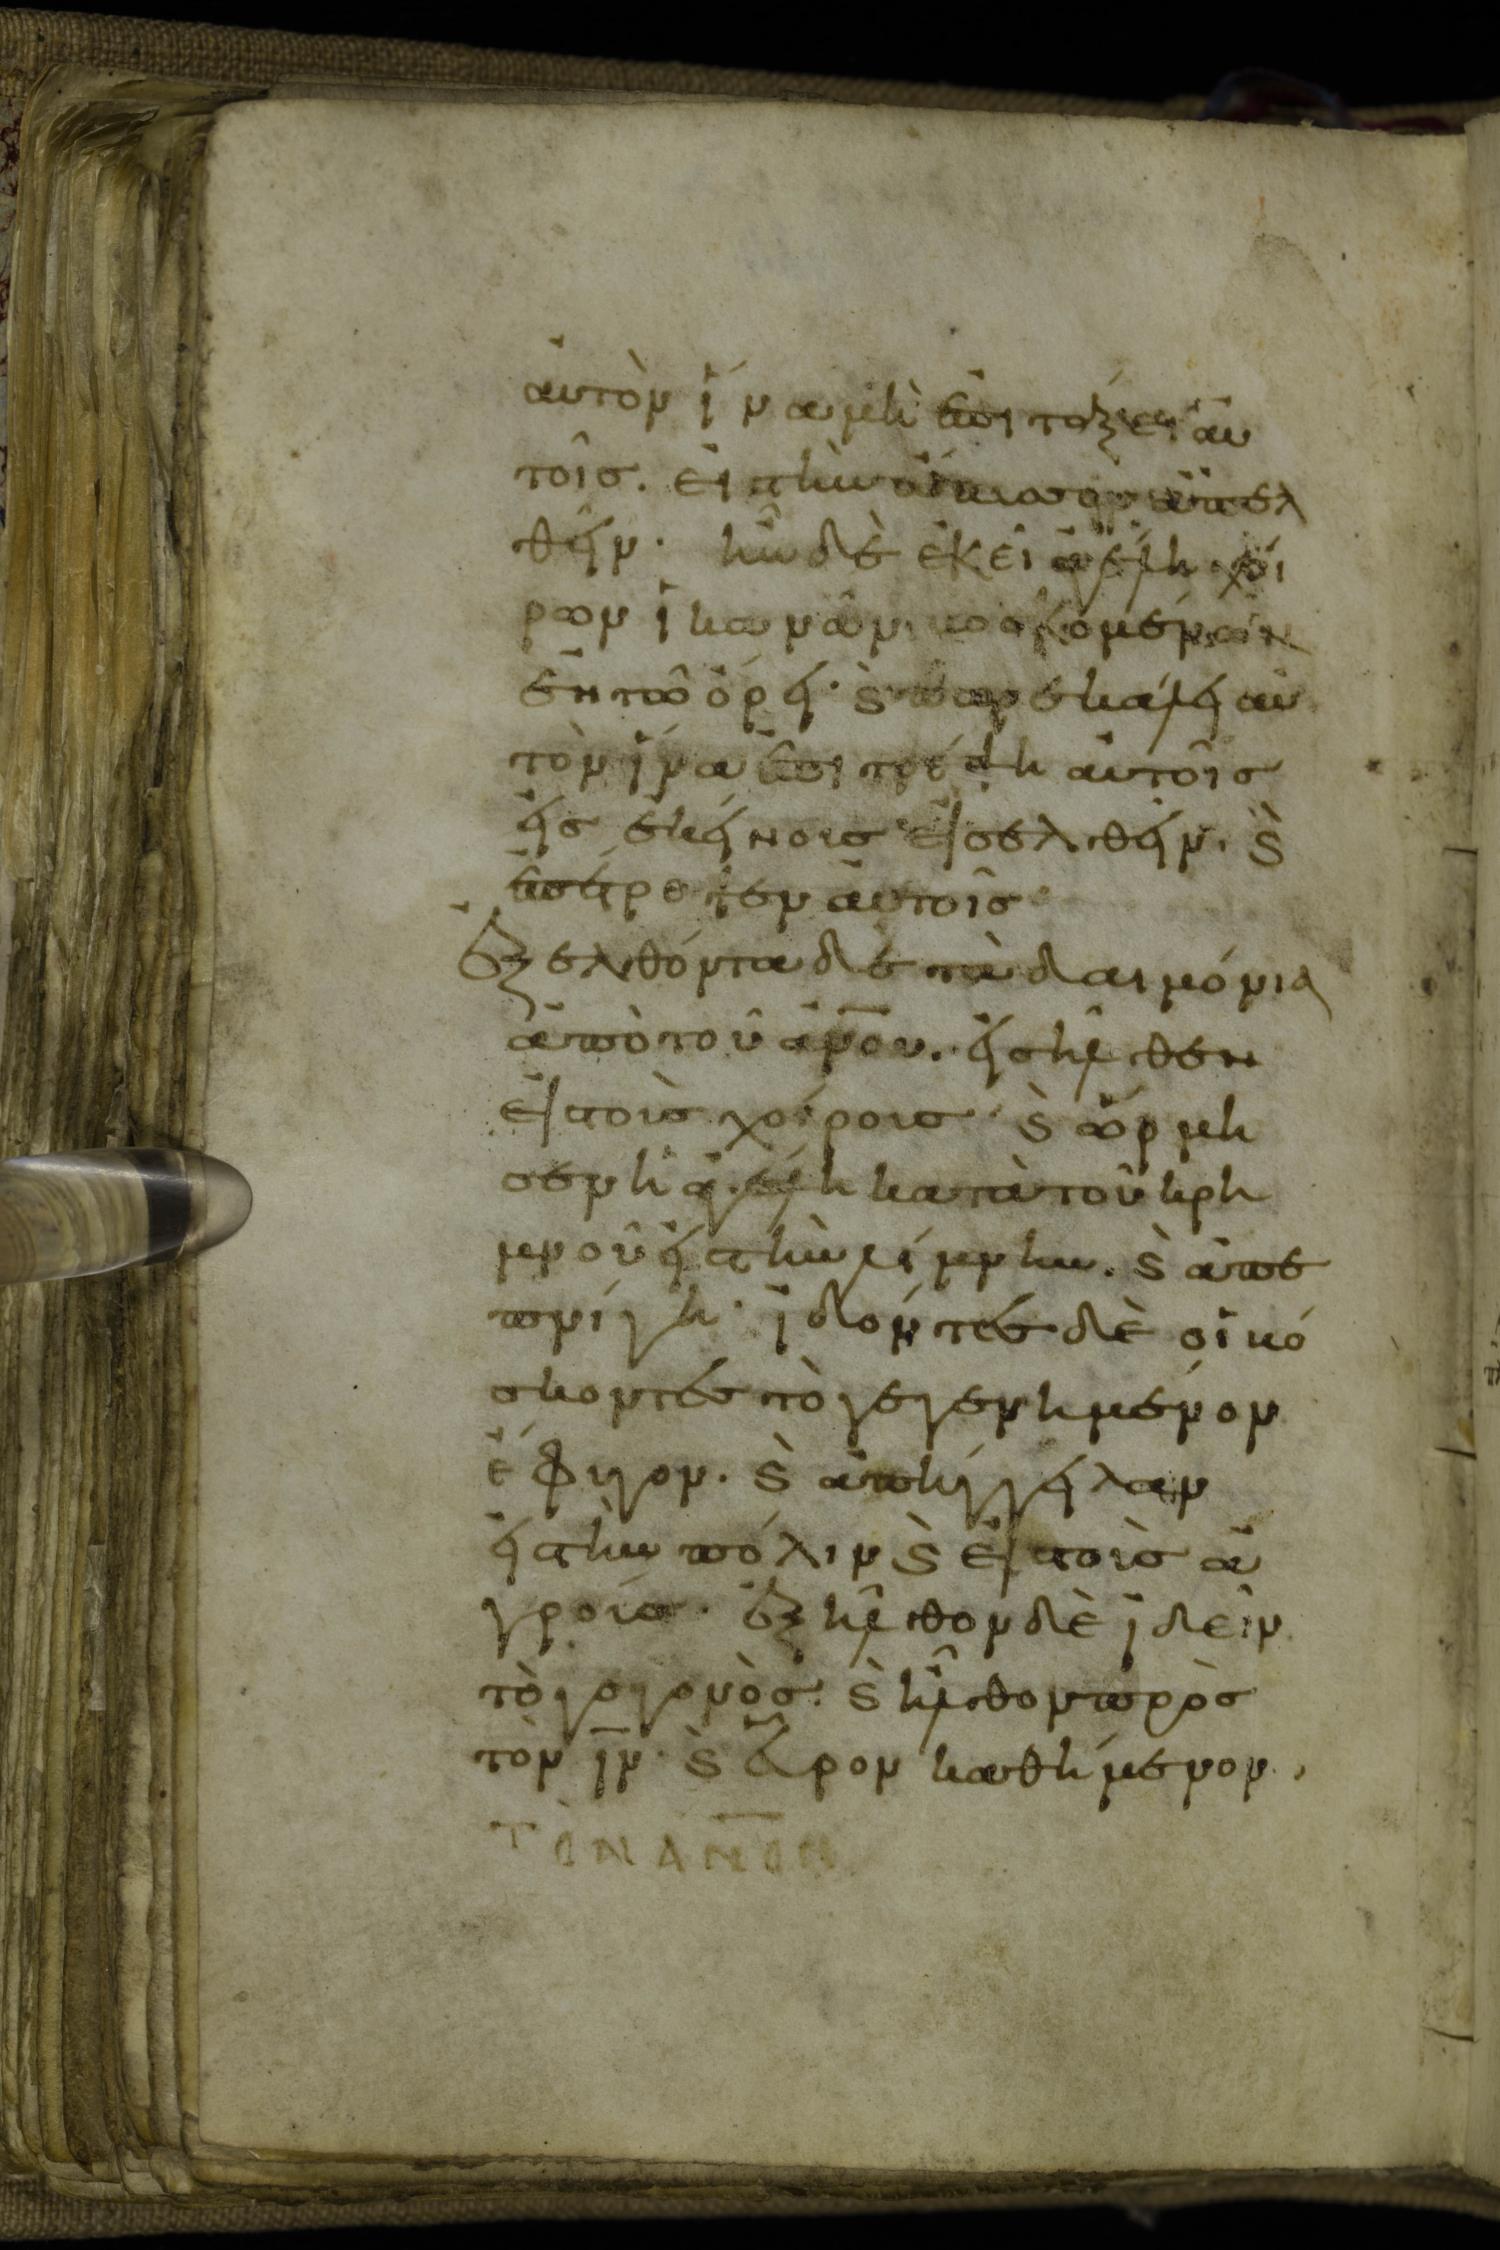 αὐτὸν ἵνα μὴ ἐπιτάξει αὐ
τοῖς. εἰς τὴν ἄβυσσον ἀπελ
θεῖν. ἦν δὲ ἐκεῖ ἀγέλη χοί
ρων ἱκανῶν βοσκομένων
ἐν τῷ ὄρει· ϗ παρεκάλει αὐ
τὸν ἵνα ἐπιτρέψη αὐτοῖς
εἰς ἐκείνοις εἰσελθεῖν. ϗ
ἐπέτρεψεν αὐτοῖς
Ἐξελθόντα δὲ τὰ δαιμόνια
ἀπὸ τοῦ ἀν̅ου. εἰσῆλθεν
εἰς τοὺς χοίρους· ϗ ὥρμη
σεν ἡ ἀγέλη κατὰ τοῦ κρη
μνοῦ εἰς τὴν λίμνην. ϗ ἀπε
πνίγη· ἰδόντες δὲ οἱ βό
σκοντες τὸ γεγενημένον
ἔφυγον. ϗ ἀπήγγειλαν
εἰς τὴν πόλιν ϗ εἰς τοὺς ἀ
γρούς· ἐξῆλθον δὲ ἰδεῖν
τὸ γεγονὸς. ϗ ἦλθον πρὸς
τὸν ι̅ν· ϗ εὗρον καθήμενον
ΤῸΝ ΑΝ̅ΟΝ